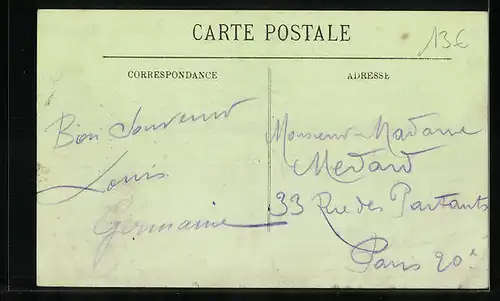 CARTE POSTALE
13€
CORRESPONDANCE
ADRESSE
Bon Souvenir
Louis
Germaine
Monsieur Madame
Medard
33 Rue des Partants
Paris 20e